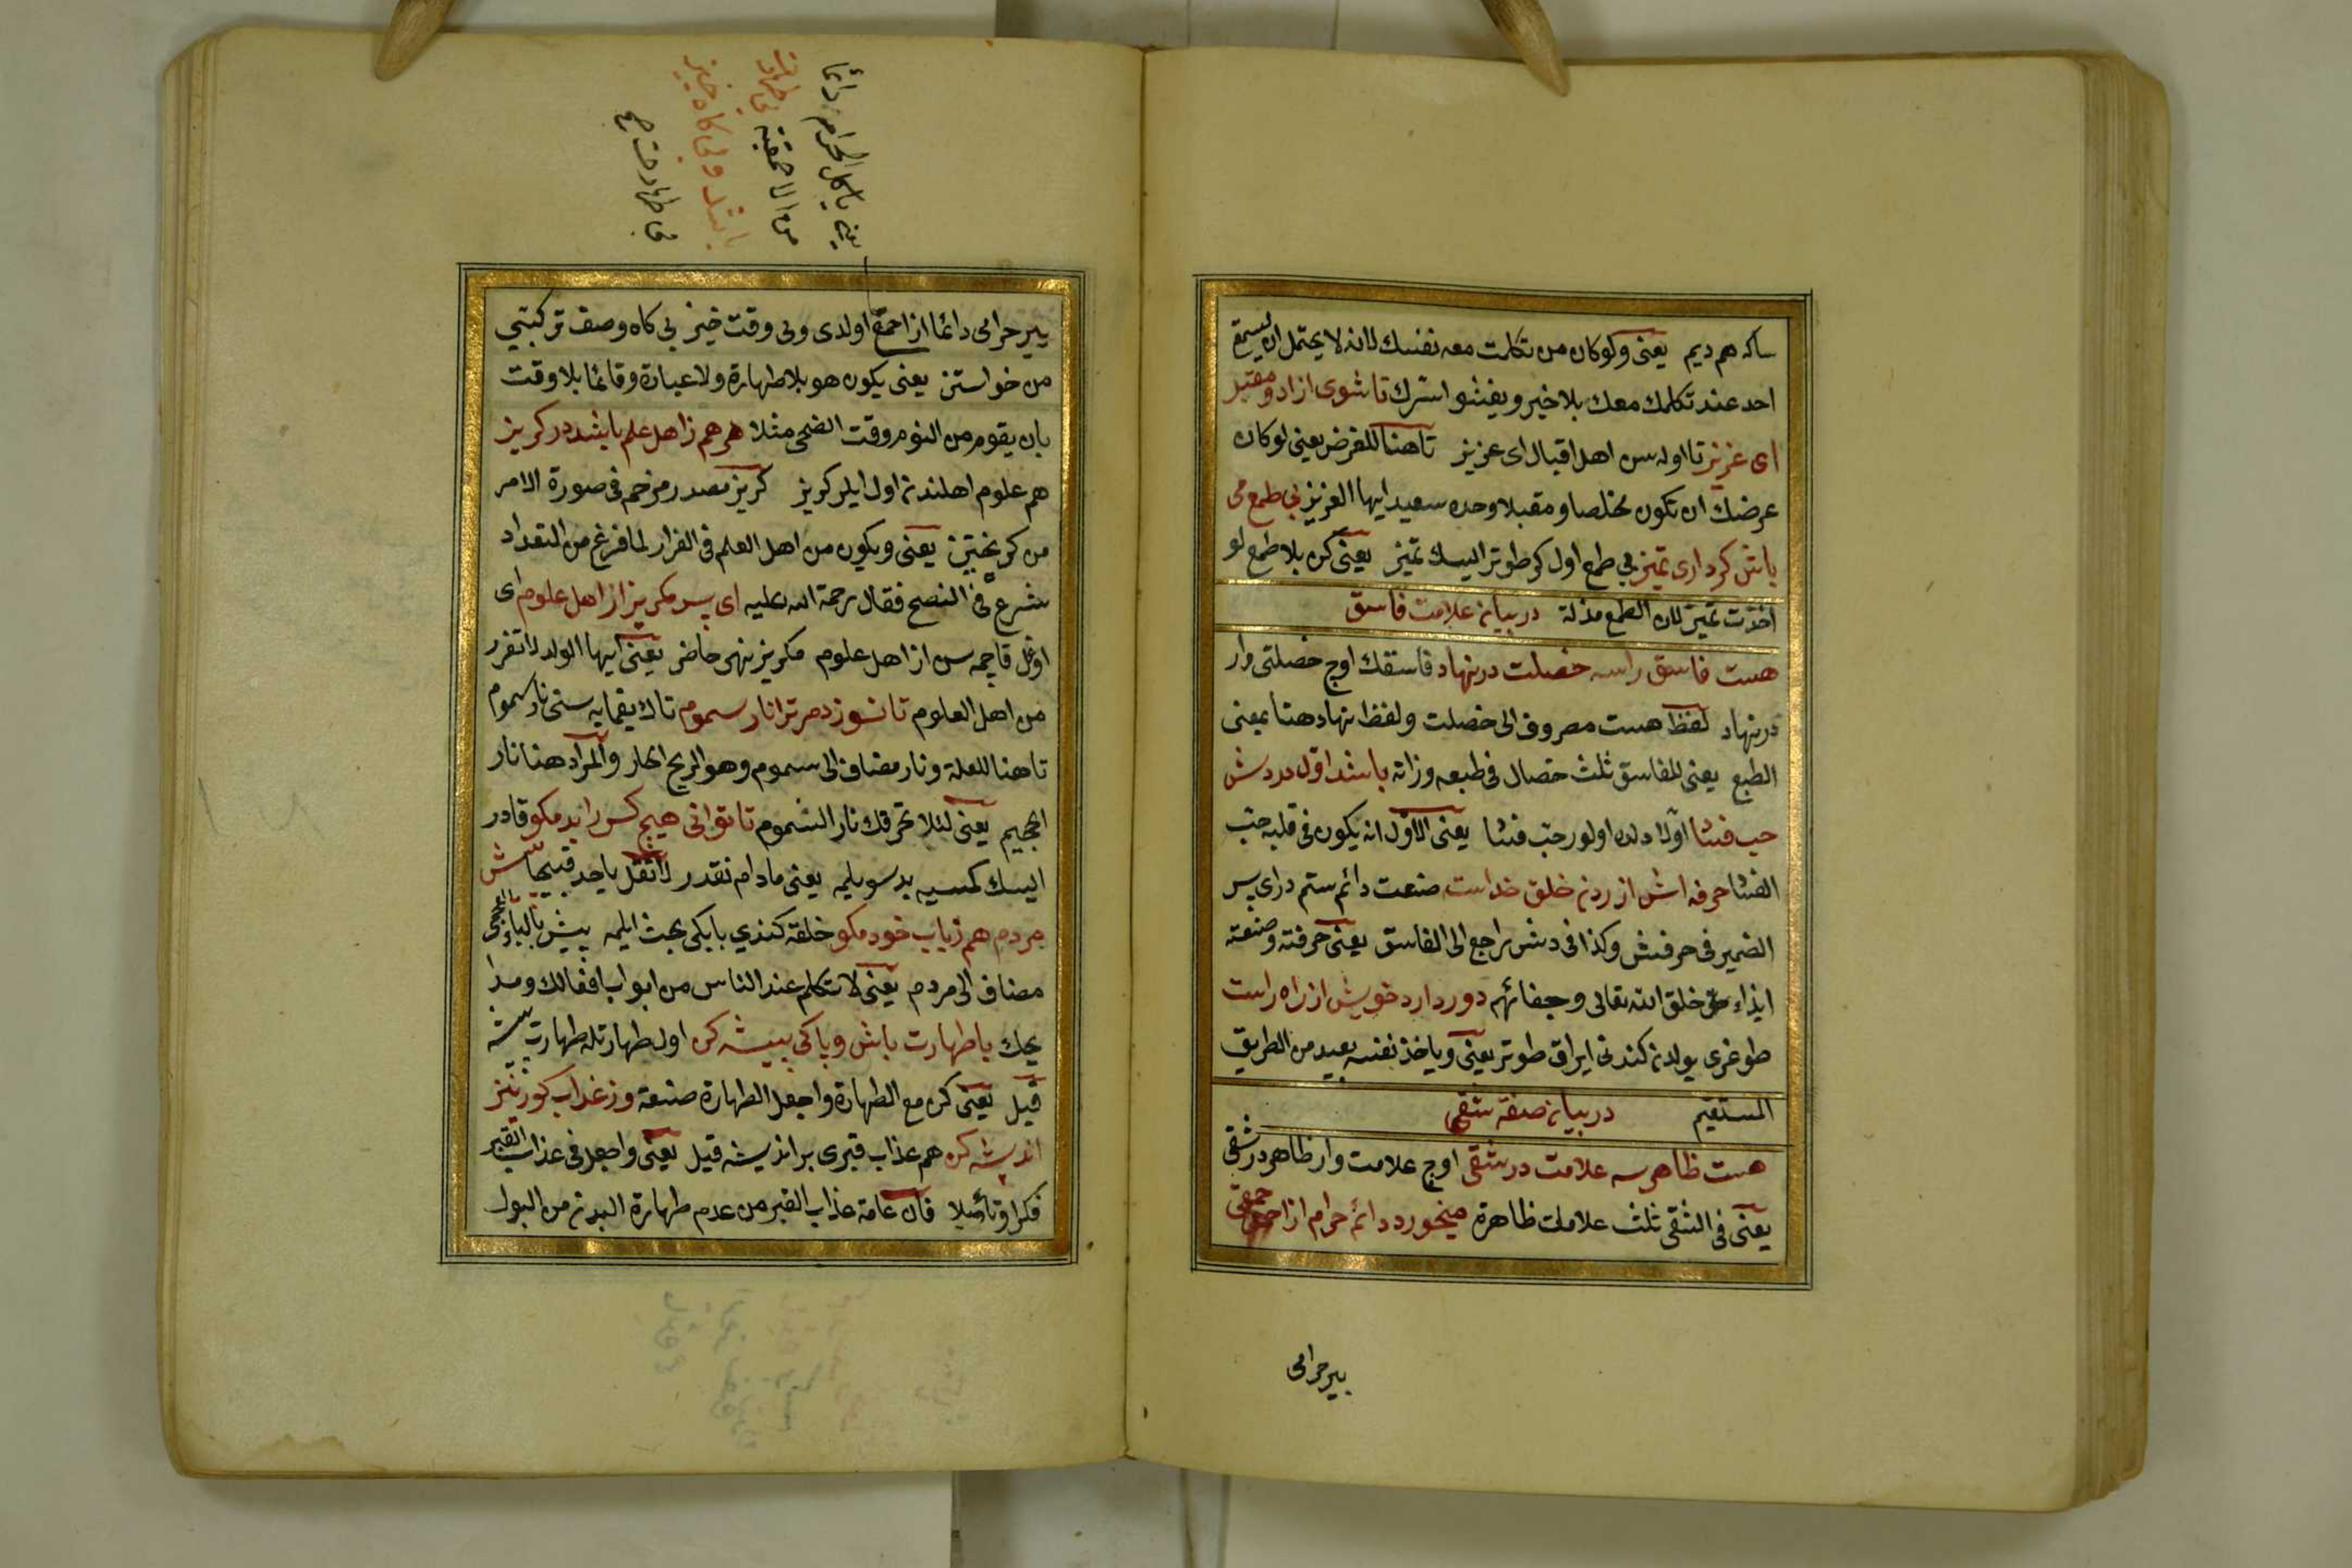 ساكه هم ديم يعنى ولوكان من تكلمت معه نفسك لانه لا يحتمل ان يستمع
احد عند تكلمك معك بلا خير ويفشوا سرك تا شوى ازاد ومقبل
اى عزيز تا اوله سن اهل اقبال اى عزيز تا هنا للغرض يعنى لو كان
غرضك ان تكون مخلصا ومقبلا وحده سعيد ايها العزيز بى طمع مى
باش كر دارى تميز بى طمع اول كر طوتر ايسك تميز يعنى كن بلا طمع لو
اخذت تميز لان الطمع مذلة در بيان علامت فاسق
هست فاسق را سه خصلت در نهاد فاسقك اوچ خصلتى وار
در نهاد لفظ هست مصروف الى خصلت ولفظ نهاد هنا بمعنى
الطبع يعنى للفاسق ثلث خصال فى طبعه وذاته باشد اول در دلش
حب فسا اولا دلده اولور حب فسا يعنى الاول انه يكون فى قلبه حب
الفسا حرفه اش ازردن خلق خداست صنعت دائم ستم در اى پس
الضمير فى حرفتش وكذا فى دلش راجع الى الفاسق يعنى حرفته وصنعته
ايذاء خلق الله تعالى وجفائهم دور دارد خويش از راه راست
طوغرى يولدن كندنى ايراق طوتر يعنى وياخذ نفسه بعيد من الطريق
المستقيم در بيان صفة شقى
هست ظاهر سه علامت در شقى اوچ علامت وار ظاهر در شقى
يعنى فى الشقى ثلث علامات ظاهرة ميخورد دائم حرام از احمقى
بير حرامى
يعنى ياكل الحرام دائما
من الاحمقية بى طهارت
باشد وبى كاه خيز
بى طهارت
بير حرامى دائما از احمق اولدى وبى وقت خيز بى كاه وصف تركيبى
من خواستن يعنى يكون هو بلا طهارة ولا عبادة وقائما بلا وقت
بان يقوم من النوم وقت الضحى مثلا هم هم ز اهل علم باشد در كريز
هم علوم اهلندن اول ايلر كريز كريز مصدر مرخم فى صورة الامر
من كريختن يعنى ويكون من اهل العلم فى الفرار لما فرغ من التعداد
شرع فى النصح فقال رحمة الله عليه اى پسر مكريز از اهل علوم اى
اوغل قاچمه سن از اهل علوم مكريز نهى حاضر يعنى ايها الولد لا تفرر
من اهل العلوم تا نسوزد مر ترا نار سموم تاكه يقمايه سنى نار سموم
تا هنا للعلة ونار مضاف الى سموم وهو الريح الحار والمراد هنا نار
الجحيم يعنى لئلا تحرقك نار السموم تا توانى هيچ كس را بد مكو قادر
ايسك كمسيه بد سويلمه يعنى ما دام تقدر لا تقل باحد قبيحا پيش
مردم هم ز باب خود مكو خلقه كندي بابكى بحث ايلمه پيش بالباء العجمى
مضاف الى مردم يعنى لا تتكلم عند الناس من ابواب افعالك ومدا
يحك با طهارت باش وپاكى پيشه كن اول طهارتله طهارت پيشه
قيل يعنى كن مع الطهارة واجعل الطهارة صنعة وز عذاب كور نيز
انديشه كن هم عذاب قبرى بر انديشه قيل يعنى واجعل فى عذاب القبر
فكرا وتأملا فان عامة عذاب القبر من عدم طهارة البدن من البول